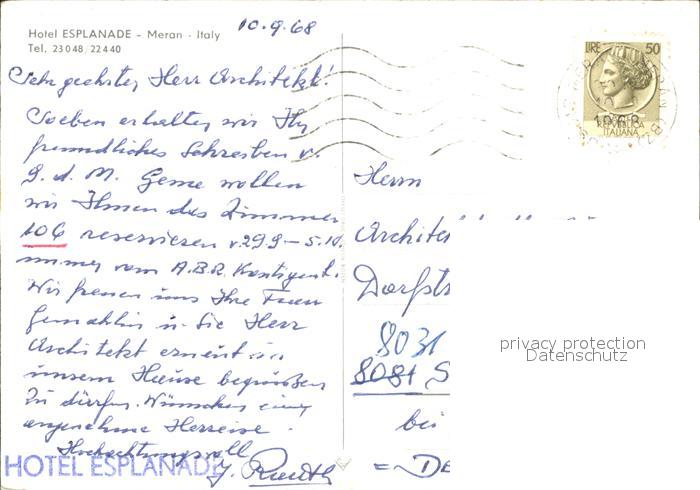 Hotel ESPLANADE - Meran - Italy
Tel. 23048/22440
10.9.68
Sehr geehrter Herr Architekt!
Soeben erhalten wir Ihr
freundliches Schreiben v.
9. d. M. Gerne wollen
wir Ihnen das Zimmer
106 reservieren v. 29.9 – 5.10.
immer vom A.B.R. Kontigent.
Wir freuen uns Ihre Frau
Gemahlin u. Sie Herr
Architekt erneut in
unsem Hause begrüßen
zu dürfen. Wünschen eine
angenehme Herreise.
Hochachtungsvoll
HOTEL ESPLANADE
LIRE 50
REPUBBLICA
ITALIANA
Herrn
Archite
Dorfst
8031
8081 S
bei
= DE
privacy protection
Datenschutz